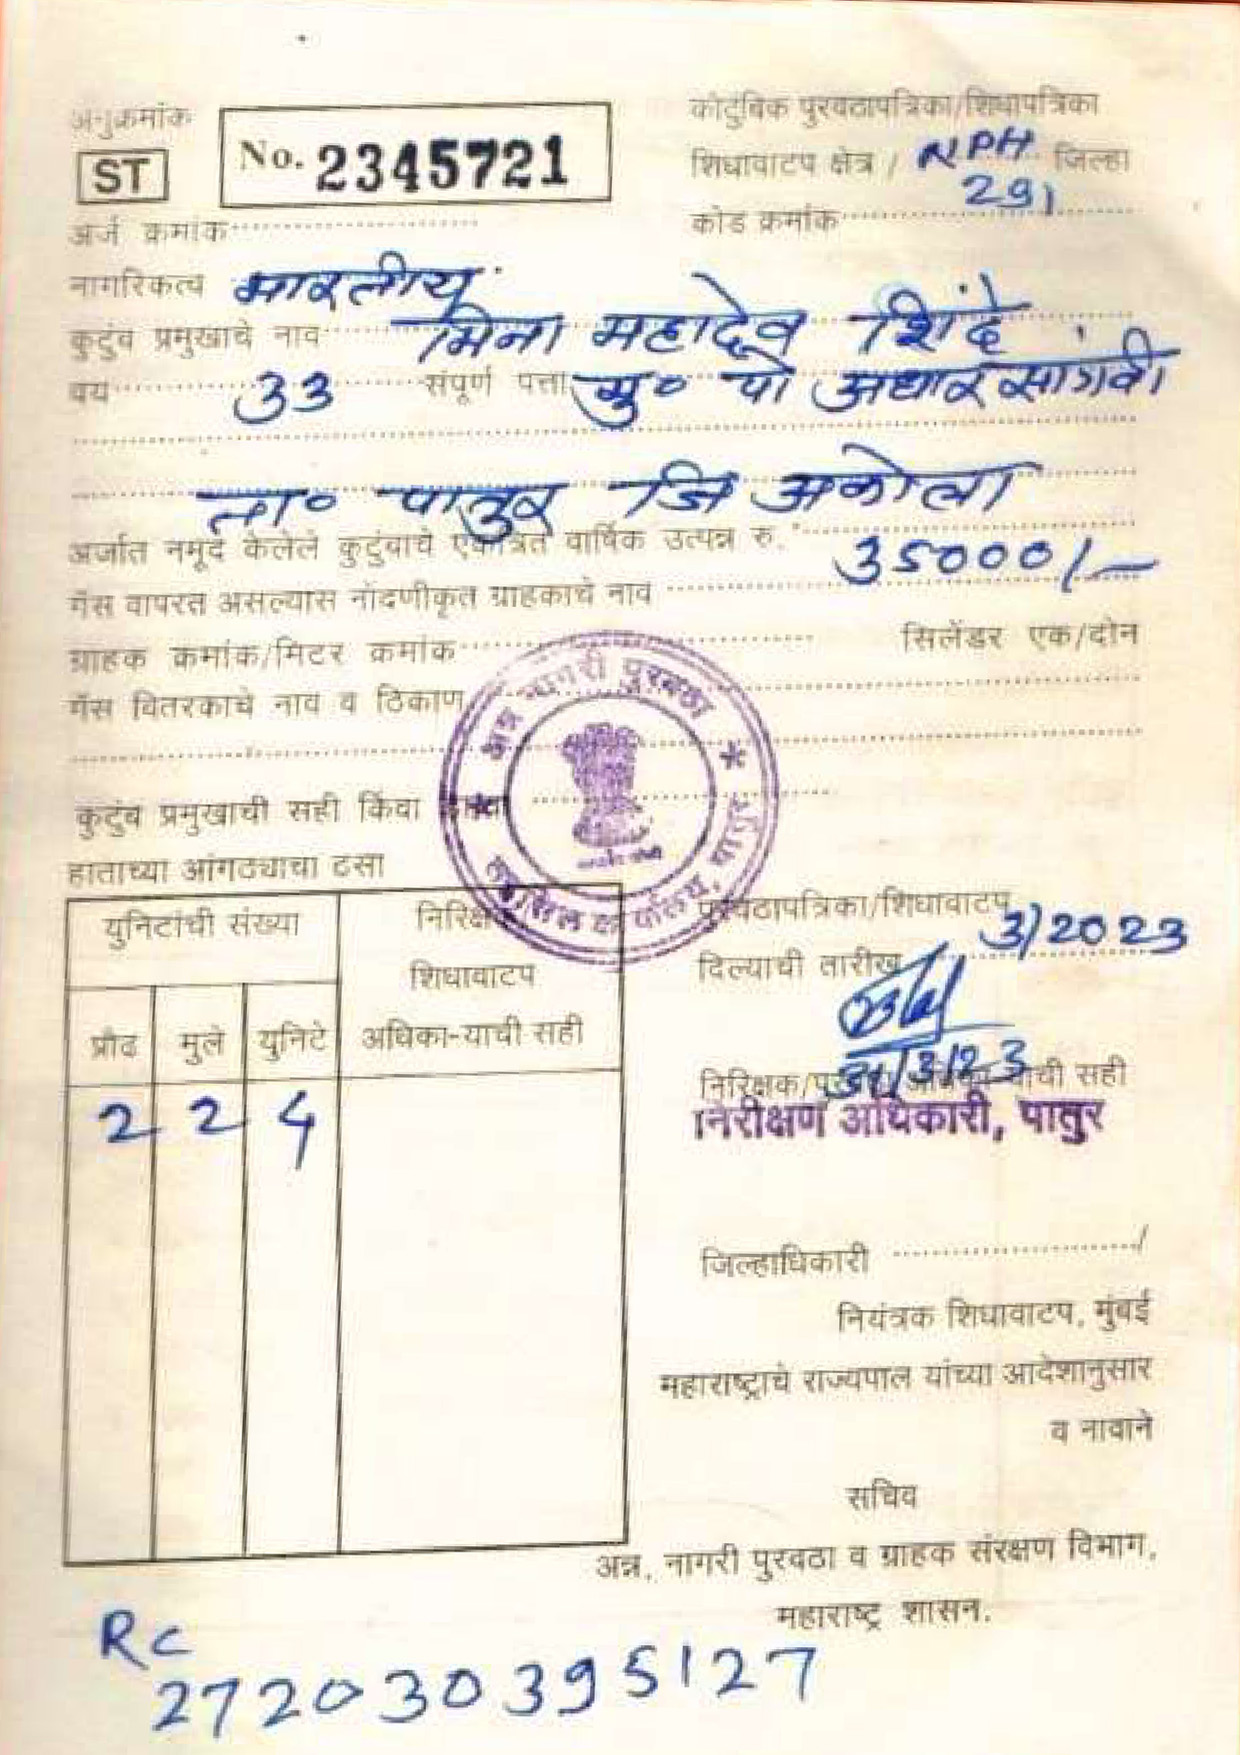 अनुक्रमांक
ST
No. 2345721
कौटुंबिक पुरवठापत्रिका/शिधापत्रिका
शिधावाटप क्षेत्र / NPH जिल्हा
291
कोड क्रमांक
अर्ज क्रमांक
नागरिकत्व भारतीय
कुटुंब प्रमुखाचे नाव मिना महादेव शिंदे
वय 33 संपूर्ण पत्ता मु० पो अधारसांगवी
ता० पातुर जि अकोला
अर्जात नमूद केलेले कुटुंबाचे एकत्रित वार्षिक उत्पन्न रु. 35000/-
गॅस वापरत असल्यास नोंदणीकृत ग्राहकाचे नाव
ग्राहक क्रमांक/मिटर क्रमांक सिलेंडर एक/दोन
गॅस वितरकाचे नाव व ठिकाण
अन्न नागरी पुरवठा * तहसिल कार्यालय, पातुर *
कुटुंब प्रमुखाची सही किंवा डाव्या
हाताच्या आंगठ्याचा ठसा
युनिटांची संख्या
प्रौढ मुले युनिटे
निरिक्षक
शिधावाटप
अधिका-याची सही
2 2 4
पुरवठापत्रिका/शिधावाटप
दिल्याची तारीख 3/2023
31/3/23
निरिक्षक/पुरवठा याची सही
निरीक्षण अधिकारी, पातुर
जिल्हाधिकारी /
नियंत्रक शिधावाटप, मुंबई
महाराष्ट्राचे राज्यपाल यांच्या आदेशानुसार
व नावाने
सचिव
अन्न, नागरी पुरवठा व ग्राहक संरक्षण विभाग,
महाराष्ट्र शासन.
RC
272030395127